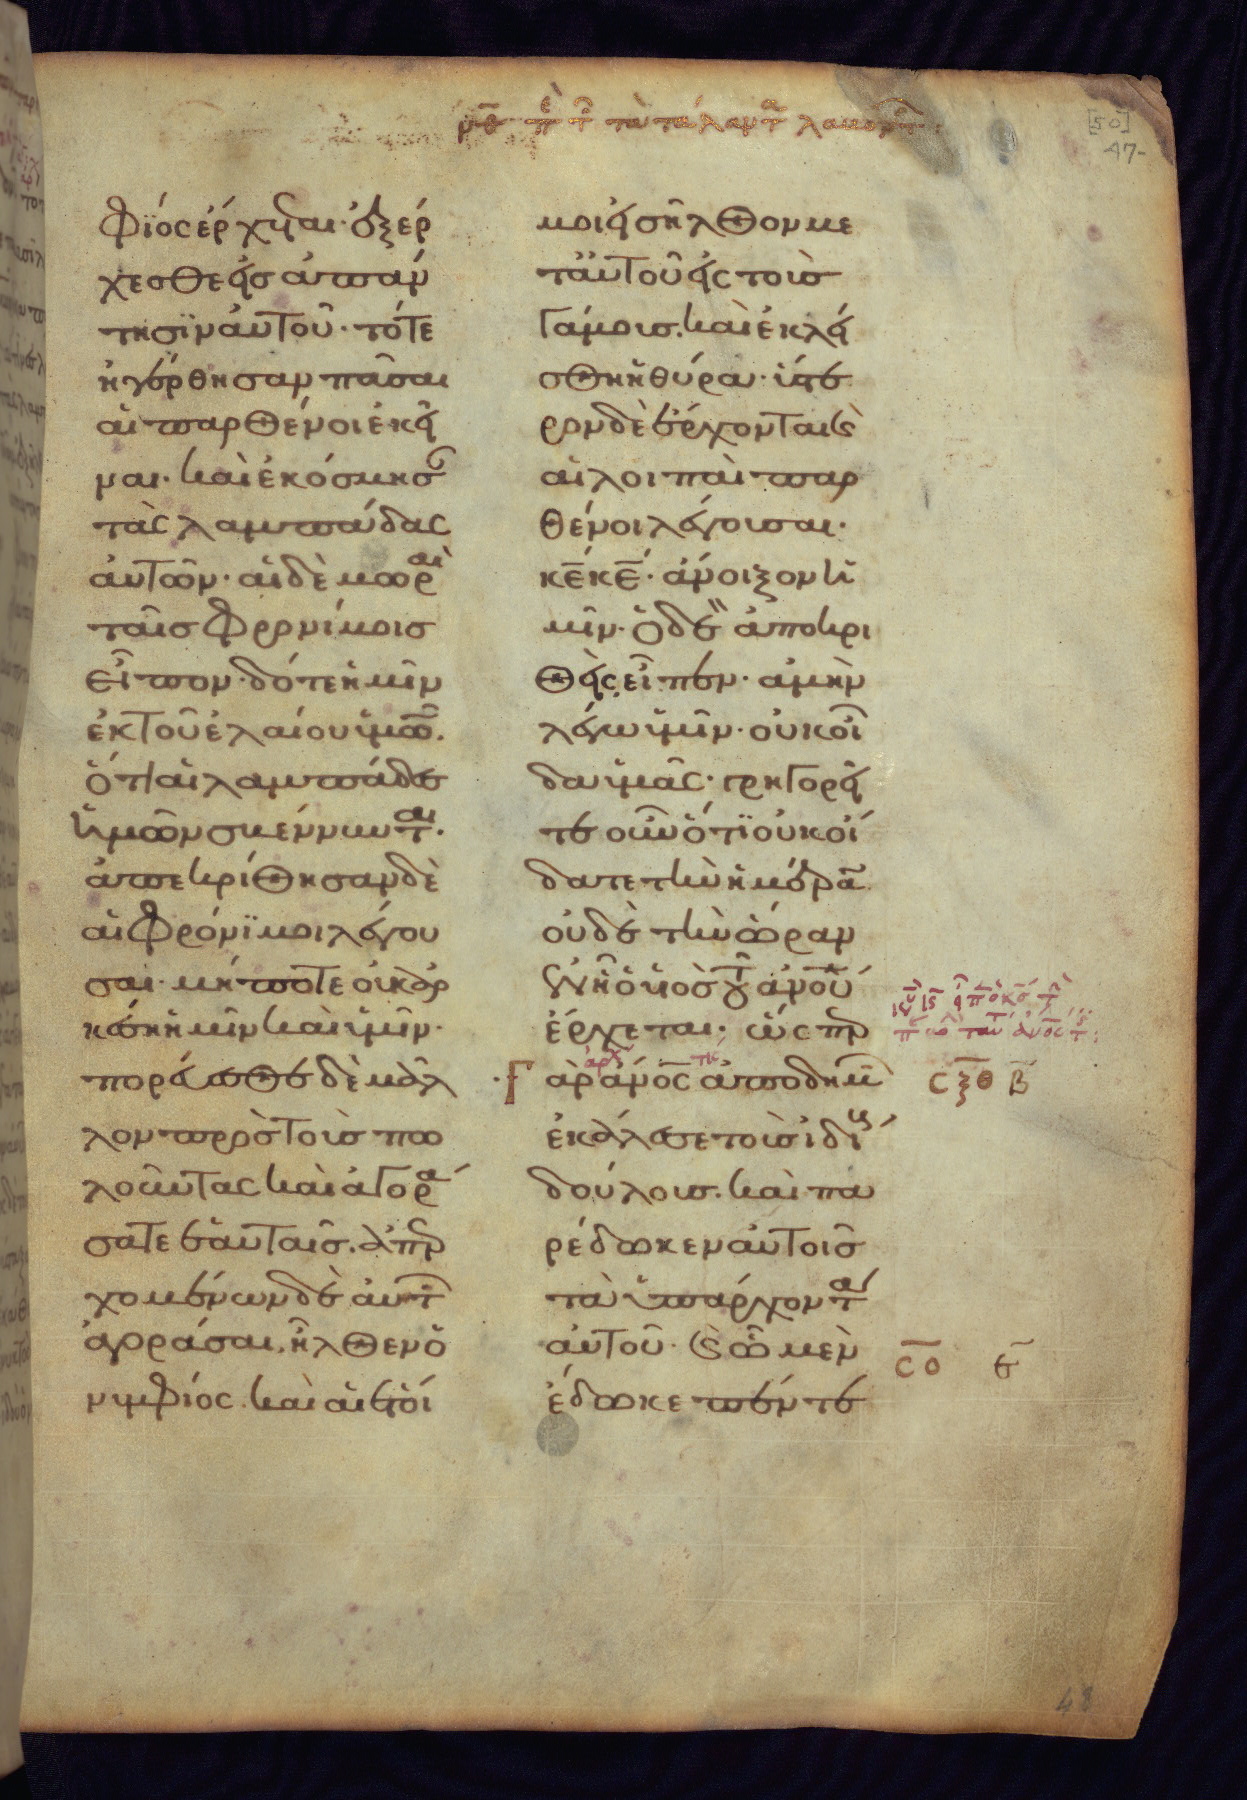 [50]
47-
φϊὸς ἔρχεται· ἐξέρ
χεσθε εἰς ἀπάν
τησϊν αὐτοῦ· τότε
ἠγέρθησαν πᾶσαι
αἱ παρθένοι ἐκεῖ
ναι· καὶ ἐκόσμησαν
τὰς λαμπάδας
αὐτῶν· αἱ δὲ μωραὶ
ταῖς φρονίμοις
εἶπον· δότε ἡμῖν
ἐκ τοῦ ἐλαίου ὑμῶν.
ὅτι αἱ λαμπάδες
ἡμῶν σβέννυνται.
ἀπεκρίθησαν δὲ
αἱ φρόνϊμοι λέγου
σαι· μήποτε οὐκ ἀρ
κέσῃ ἡμῖν καὶ ὑμῖν·
πορεύεσθε δὲ μᾶλ
λον πρὸς τοὺς πω
λοῦντας καὶ ἀγορά
σατε ἑαυταῖς. ἀπερ
χομένων δὲ αὐτῶν
ἀγοράσαι, ἦλθεν ὁ
νυμφίος. καὶ αἱ ἕτοι
μοι εἰσῆλθον με
τ' αὐτοῦ εἰς τοὺς
γάμους. καὶ ἐκλεί
σθη ἡ θύρα· ὕστε
ρον δὲ ἔρχονται καὶ
αἱ λοιπαὶ παρ
θένοι λέγουσαι·
κ̅ε̅ κ̅ε̅· ἄνοιξον ἡ
μῖν· ὁ δὲ ἀποκρι
θεὶς εἶπεν· ἀμὴν
λέγω ὑμῖν· οὐκ οἶ
δα ὑμᾶς· γρηγορεῖ
τε οὖν ὅτϊ οὐκ οἴ
δατε τὴν ἡμέραν
οὐδὲ τὴν ὥραν
ἐν ᾗ ὁ υἱὸς τοῦ ἀνου
ἔρχεται· ὥσπερ
γὰρ ἀνος ἀποδημῶν
ἐκάλεσε τοὺς ἰδίους
δούλους. καὶ πα
ρέδωκεν αὐτοῖς
τὰ ὑπάρχοντα
αὐτοῦ· καὶ ᾧ μὲν
ἔδωκε πέντε
ἀρχ
σξθ β
σο ε
48